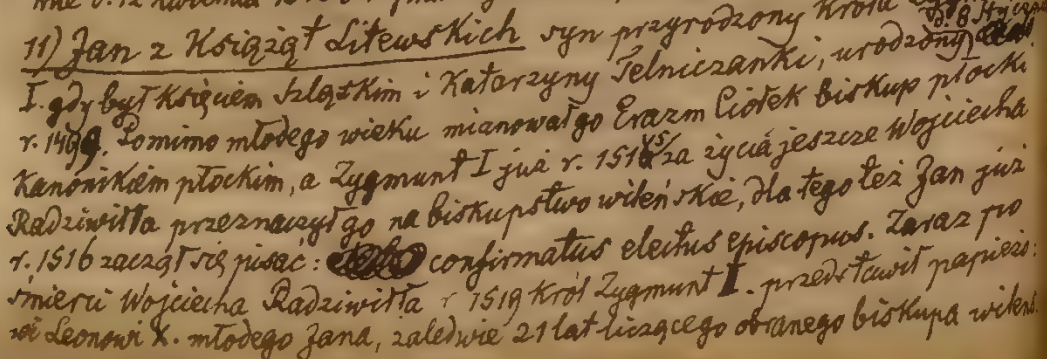 11) Jan z Książąt Litewskich syn przyrodzony Króla
d. 8 Stycznia
I. gdy był Księciem Szląskim i Katarzyny Telniczanki, urodzony
r. 1499. Pomimo młodego wieku mianował go Erazm Ciołek biskup płocki
Kanonikiem płockim, a Zygmunt I już r. 1515 za życia jeszcze Wojciecha
Radziwiłła przeznaczył go na biskupstwo wileńskie, dla tego też Jan już
r. 1516 zaczął się pisać: confirmatus electus episcopus. Zaraz po
śmierci Wojciecha Radziwiłła r 1519 Król Zygmunt I. przedstawił papieżo:
wi Leonowi X. młodego Jana, zaledwie 21 lat liczącego obranego biskupa wileńs.